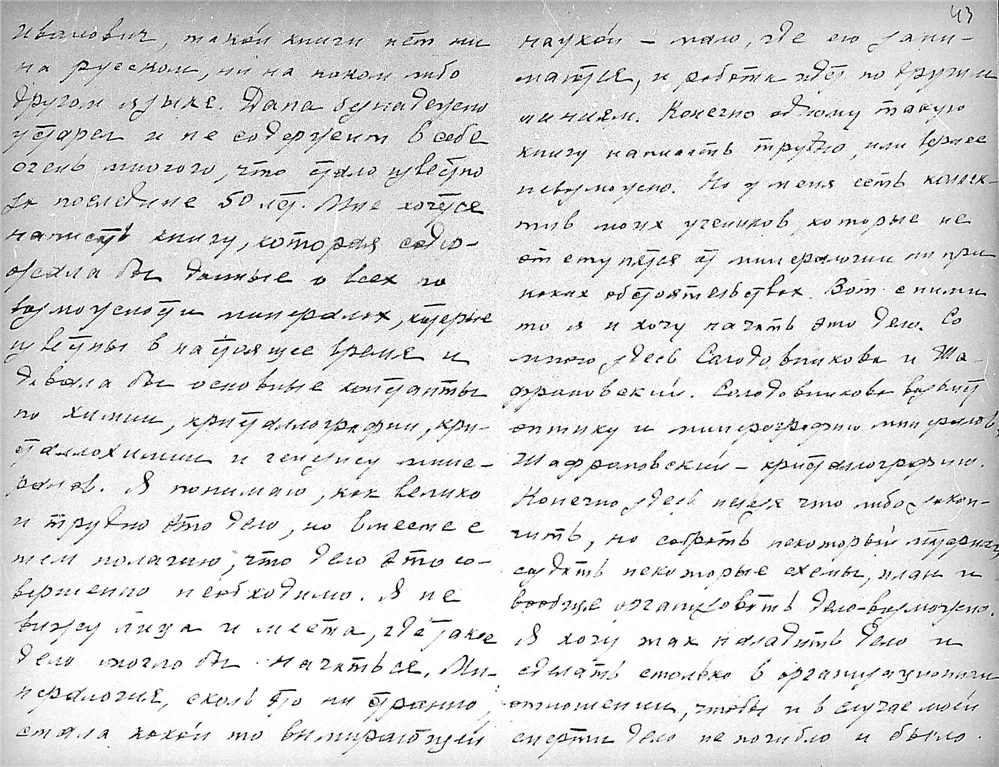 Иванович, такой книги нет ни
на русском, ни на каком либо
другом языке. Дана безнадежно
устарел и не содержит в себе
очень многого, что стало известно
за последние 50 лет. Мне хочется
написать книгу, которая содер-
жала бы данные о всех по
возможности минералах, которые
известны в настоящее время и
давала бы основные константы
по химии, кристаллографии, кри-
сталлохимии и генезису мине-
ралов. Я понимаю, как велико
и трудно это дело, но вместе с
тем полагаю, что дело это со-
вершенно необходимо. Я не
вижу лица и места, где такое
дело могло бы начаться. Ми-
нералогия, сколь это ни странно,
стала какой то вымирающей
43
наукой – мало, где ею зани-
маются, и работа идет по другим
линиям. Конечно одному такую
книгу написать трудно, или вернее
невозможно. Но у меня есть коллек-
тив моих учеников, которые не
отступятся от минералогии ни при
каких обстоятельствах. Вот с ними
то я и хочу начать это дело. Со
мною здесь Солодовникова и Ша-
франовский. Солодовникова возьмет
оптику и минерографию минералов,
Шафрановский – кристаллографию.
Конечно здесь нельзя что либо закон-
чить, но собрать некоторый материал,
создать некоторые схемы, план и
вообще организовать дело – возможно.
Я хочу так наладить дело и
сделать столько в организационном
отношении, чтобы и в случае моей
смерти дело не погибло и было